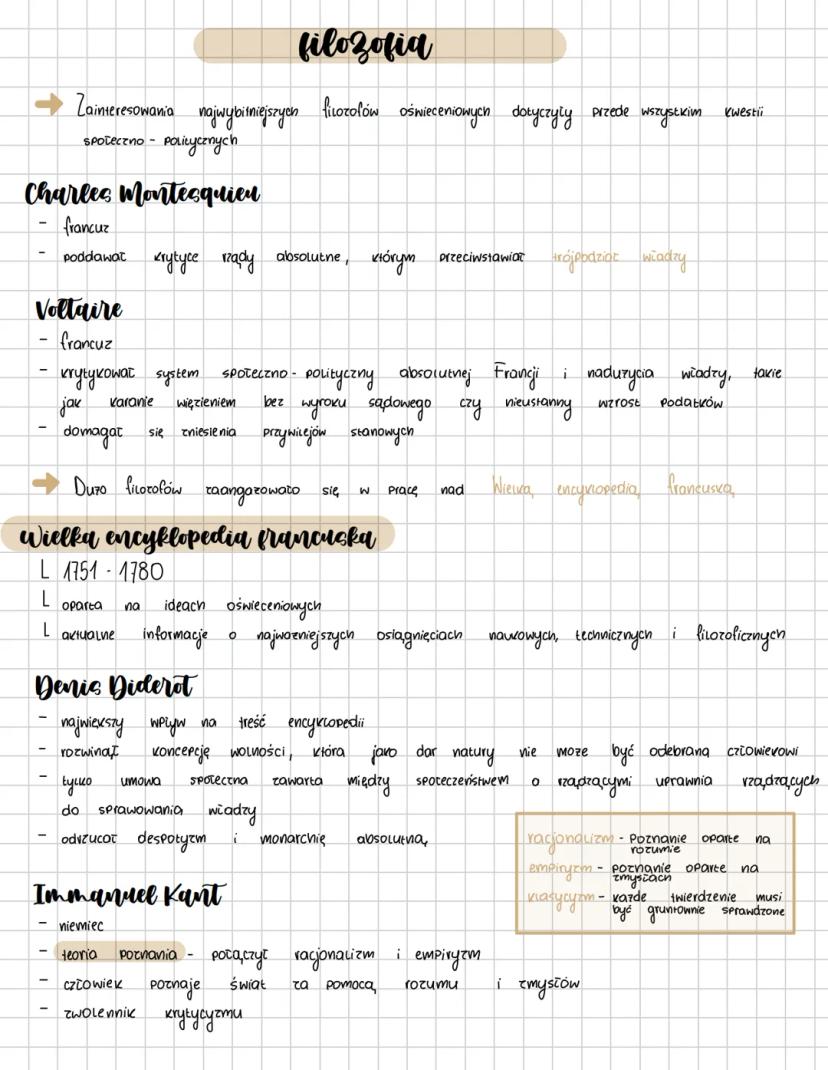 filozofia
Zainteresowania najwybitniejszych filozofów oświeceniowych dotyczyły przede wszystkim kwestii
społeczno - politycznych
Charles Montesquieu
- francuz
- poddawał krytyce rządy absolutne, którym przeciwstawiał trójpodział władzy
Voltaire
- francuz
- krytykował system społeczno - polityczny absolutnej Francji i nadużycia władzy, takie
jak karanie więzieniem bez wyroku sądowego czy nieustanny wzrost podatków
- domagał się zniesienia przywilejów stanowych
Dużo filozofów zaangażowało się w pracę nad Wielką encyklopedią francuską
Wielka encyklopedia francuska
L 1751 - 1780
L oparta na ideach oświeceniowych
L aktualne informacje o najważniejszych osiągnięciach naukowych, technicznych i filozoficznych
Denis Diderot
- największy wpływ na treść encyklopedii
- rozwinął koncepcję wolności, która jako dar natury nie może być odebrana człowiekowi
- tylko umowa społeczna zawarta między społeczeństwem a rządzącymi uprawnia rządzących
do sprawowania władzy
- odrzucał despotyzm i monarchię absolutną
racjonalizm - poznanie oparte na
rozumie
empiryzm - poznanie oparte na
zmysłach
klasycyzm - każde twierdzenie musi
być gruntownie sprawdzone
Immanuel Kant
- niemiec
- teoria poznania - połączył racjonalizm i empiryzm
- człowiek poznaje świat za pomocą rozumu i zmysłów
- zwolennik krytycyzmu